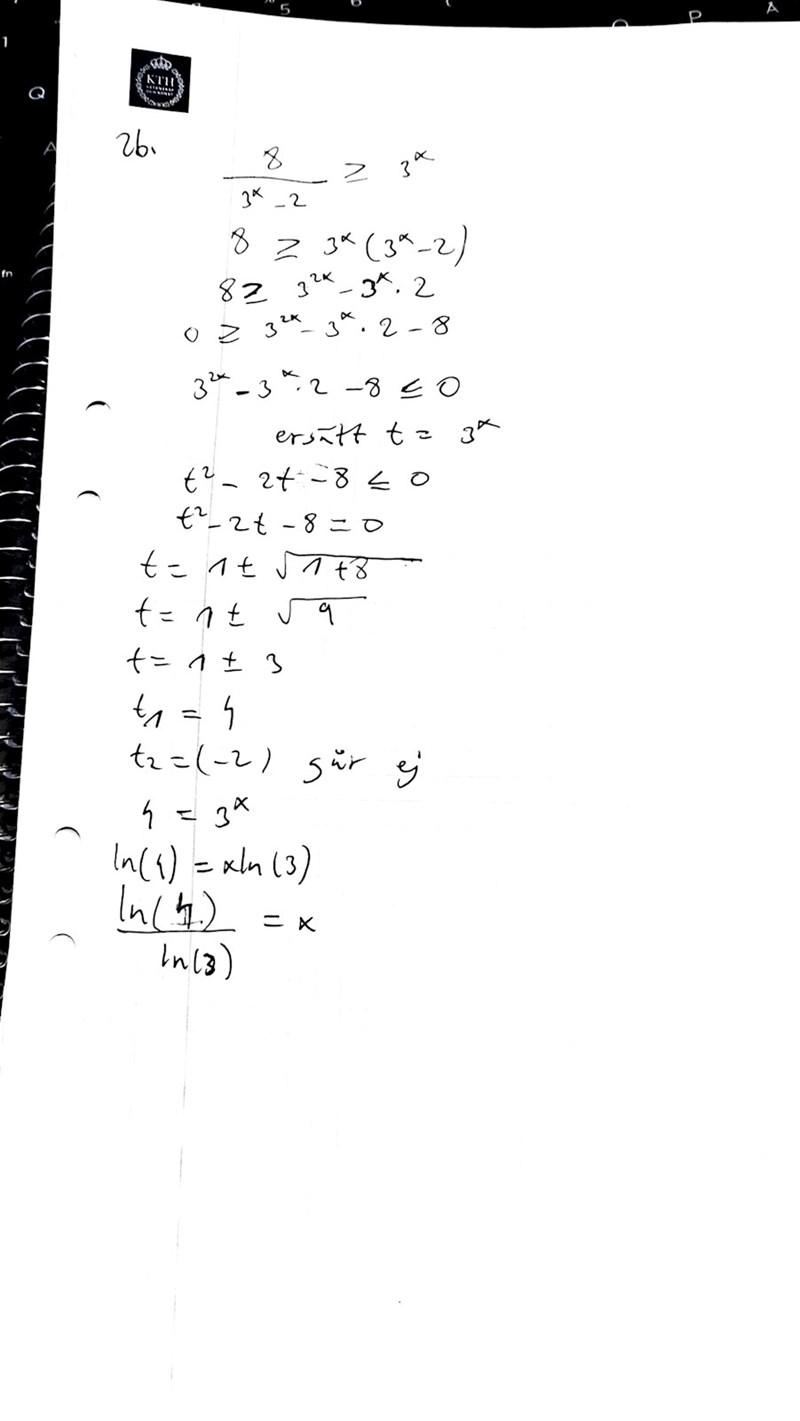 5 6
P A
1
Q
A
fn
KTH
2b.
8/(3^x - 2) ≥ 3^x
8 ≥ 3^x (3^x - 2)
8 ≥ 3^2x - 3^x · 2
0 ≥ 3^2x - 3^x · 2 - 8
3^2x - 3^x · 2 - 8 ≤ 0
ersätt t = 3^x
t² - 2t - 8 ≤ 0
t² - 2t - 8 = 0
t = 1 ± √(1+8)
t = 1 ± √9
t = 1 ± 3
t₁ = 4
t₂ = (-2) går ej
4 = 3^x
ln(4) = x ln(3)
ln(4)/ln(3) = x